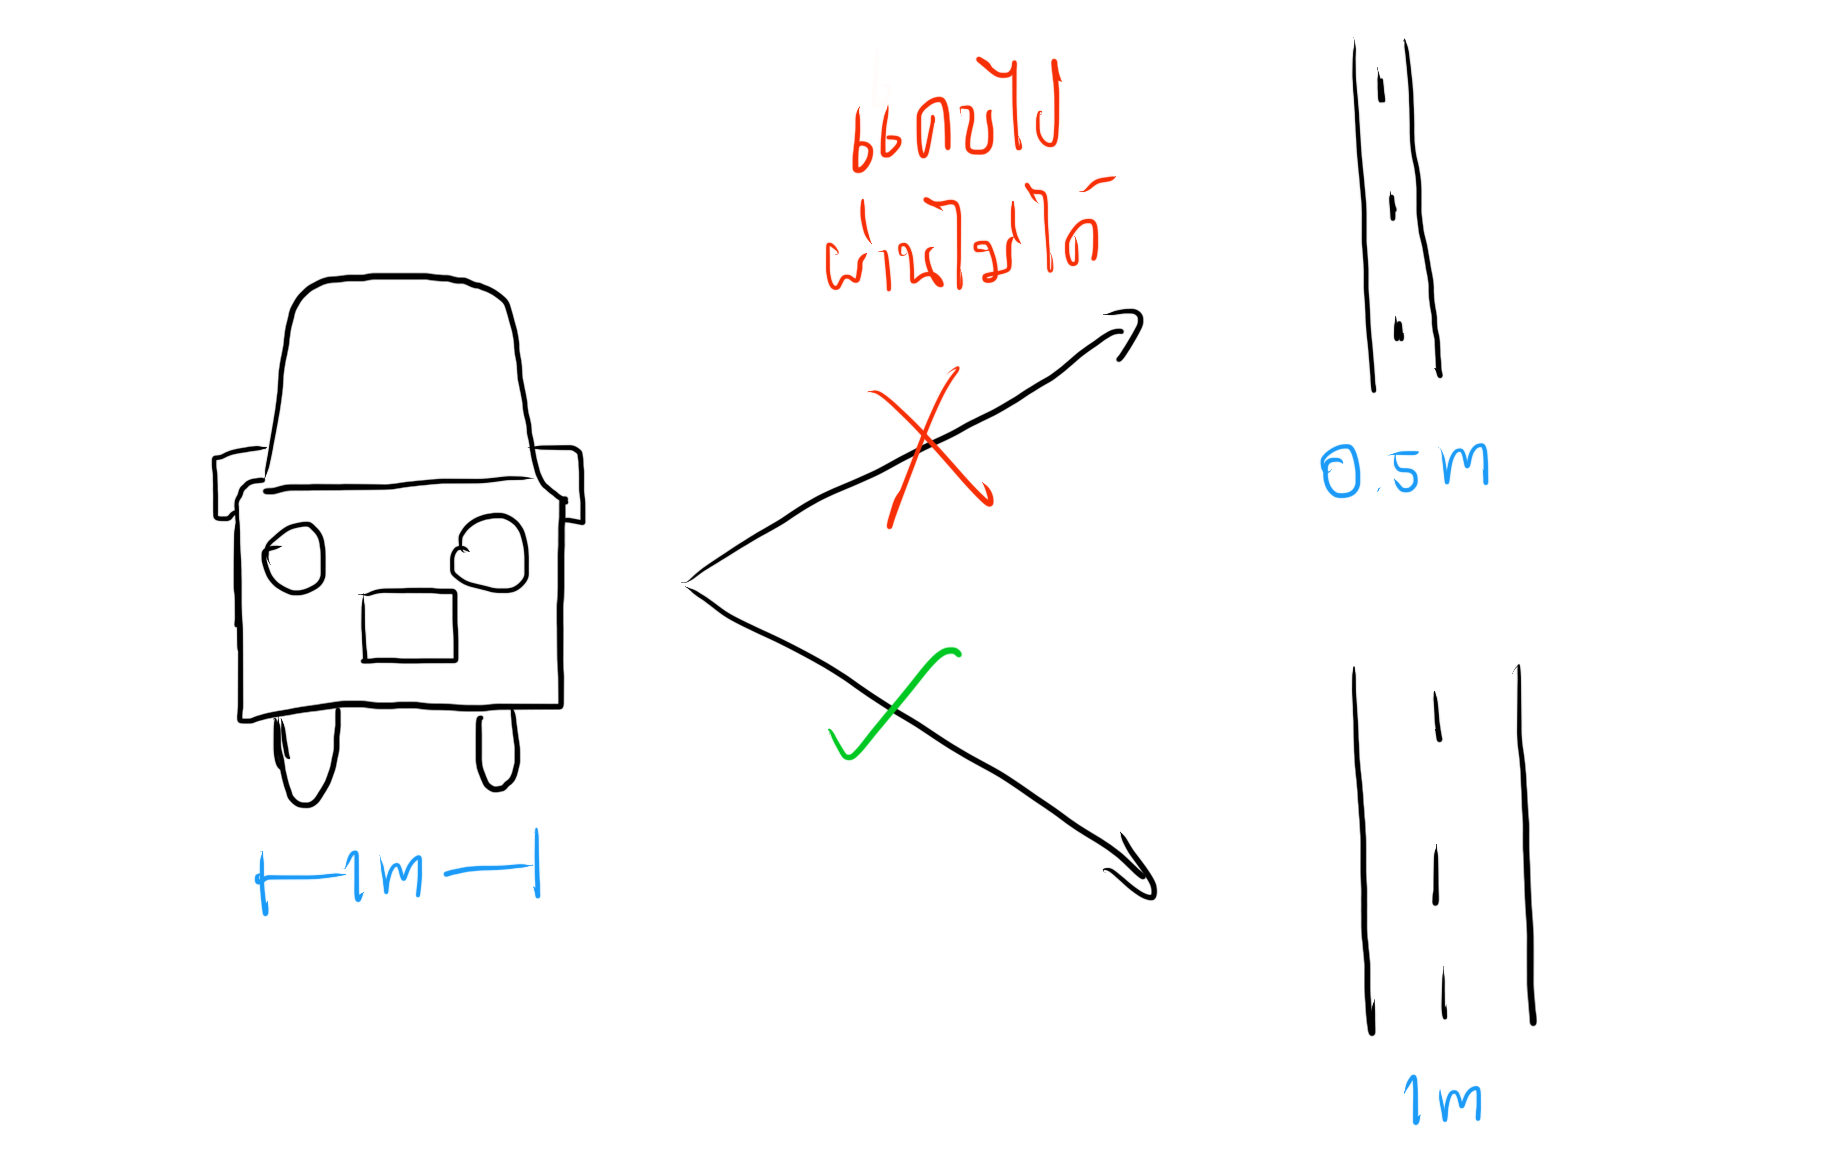 แคบไป
ผ่านไม่ได้
0.5m
1m
1m